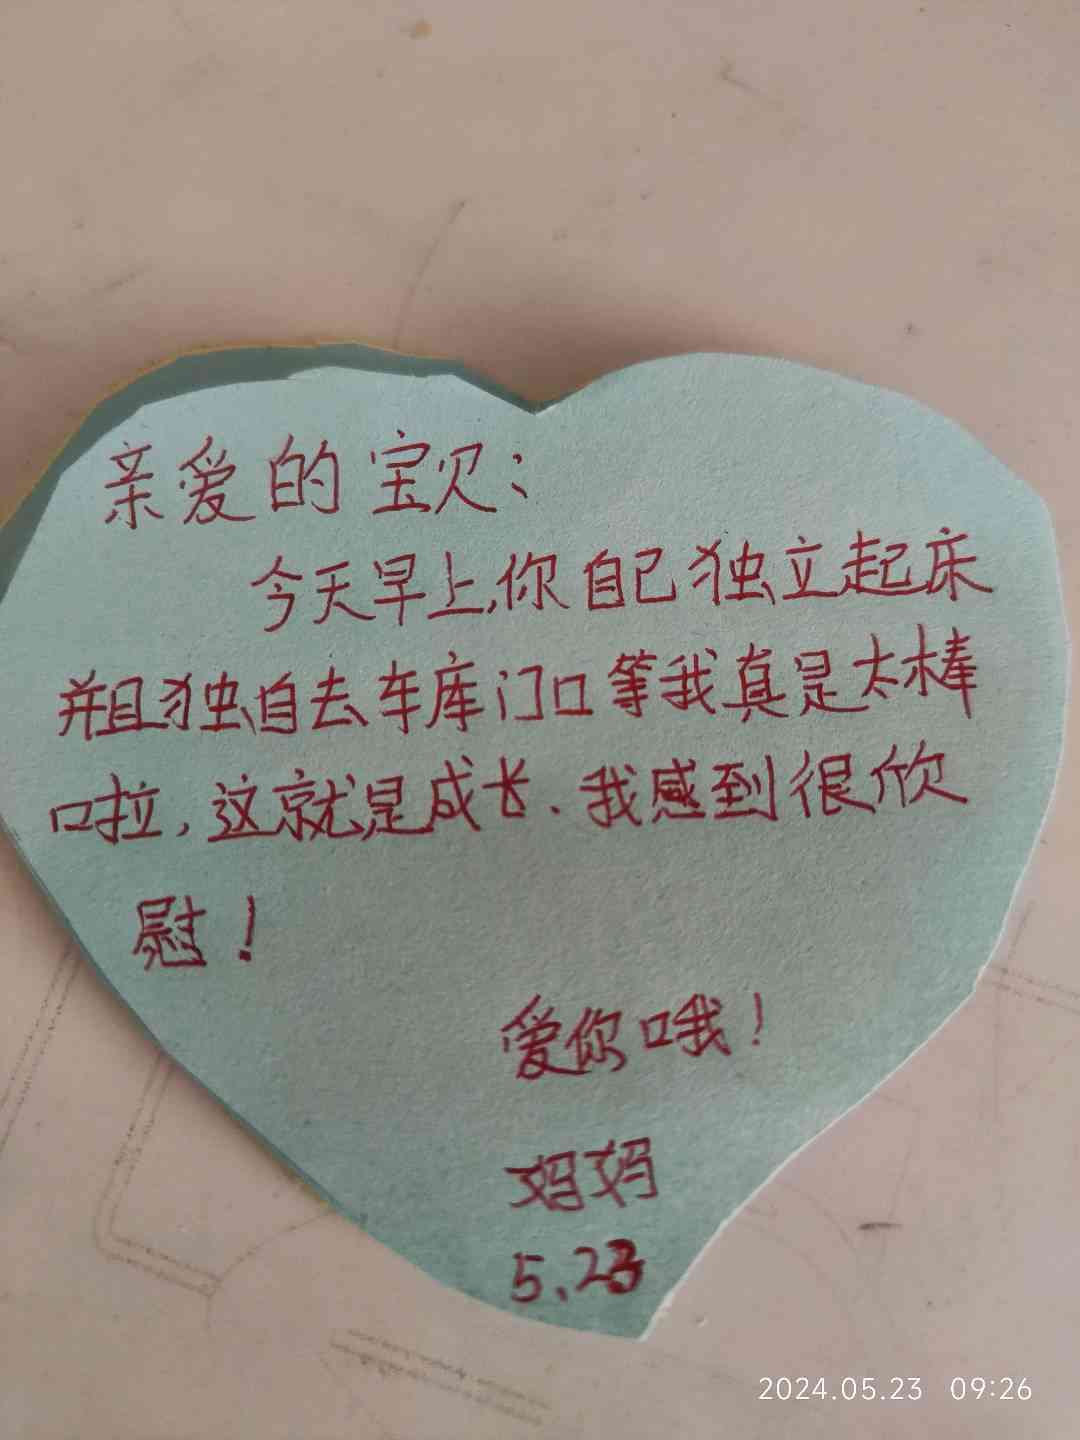 亲爱的宝贝：
今天早上,你自己独立起床
并且独自去车库门口等我真是太棒
啦,这就是成长.我感到很欣
慰！
爱你哦！
妈妈
5.23
2024.05.23 09:26